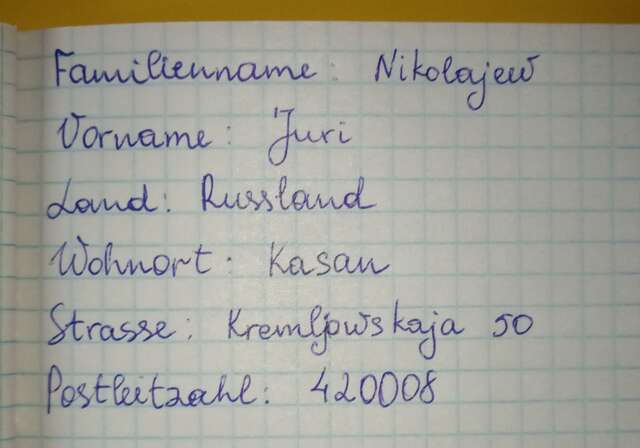 Familienname: Nikolajew
Vorname: Juri
Land: Russland
Wohnort: Kasan
Strasse: Kremljowskaja 50
Postleitzahl: 420008